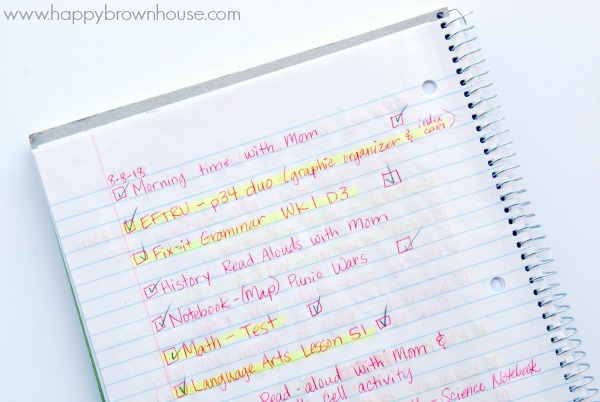 www.happybrownhouse.com
8-8-18
Morning time with Mom
EFTRU - p34 duo (graphic organizer & index card)
Fix-it Grammar WK 1 D3
History Read Alouds with Mom
Notebook - (Map) Punic Wars
Math - Test
Language Arts Lesson 51
Read-aloud with Mom &
cell activity
- Science Notebook